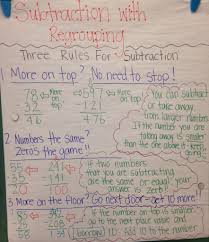 Subtraction with
Regrouping
Three Rules For Subtraction
More on top? No need to stop!
78 More on top 697 More on top
- 32 - 121
46 576
You can subtract
or take away
from larger numbers
If the number you are
taking away is smaller
than the one above it keep
going
2 Numbers the same?
Zero's the game!!
- 35 - 141
20 100
if two numbers
that you are subtracting
are the same (or equal) your
answer is zero!!
3 More on the floor? Go next door - get 10 more!
if the number on top is smaller
go to the next place value and
(borrow) 10: add 10 to the number